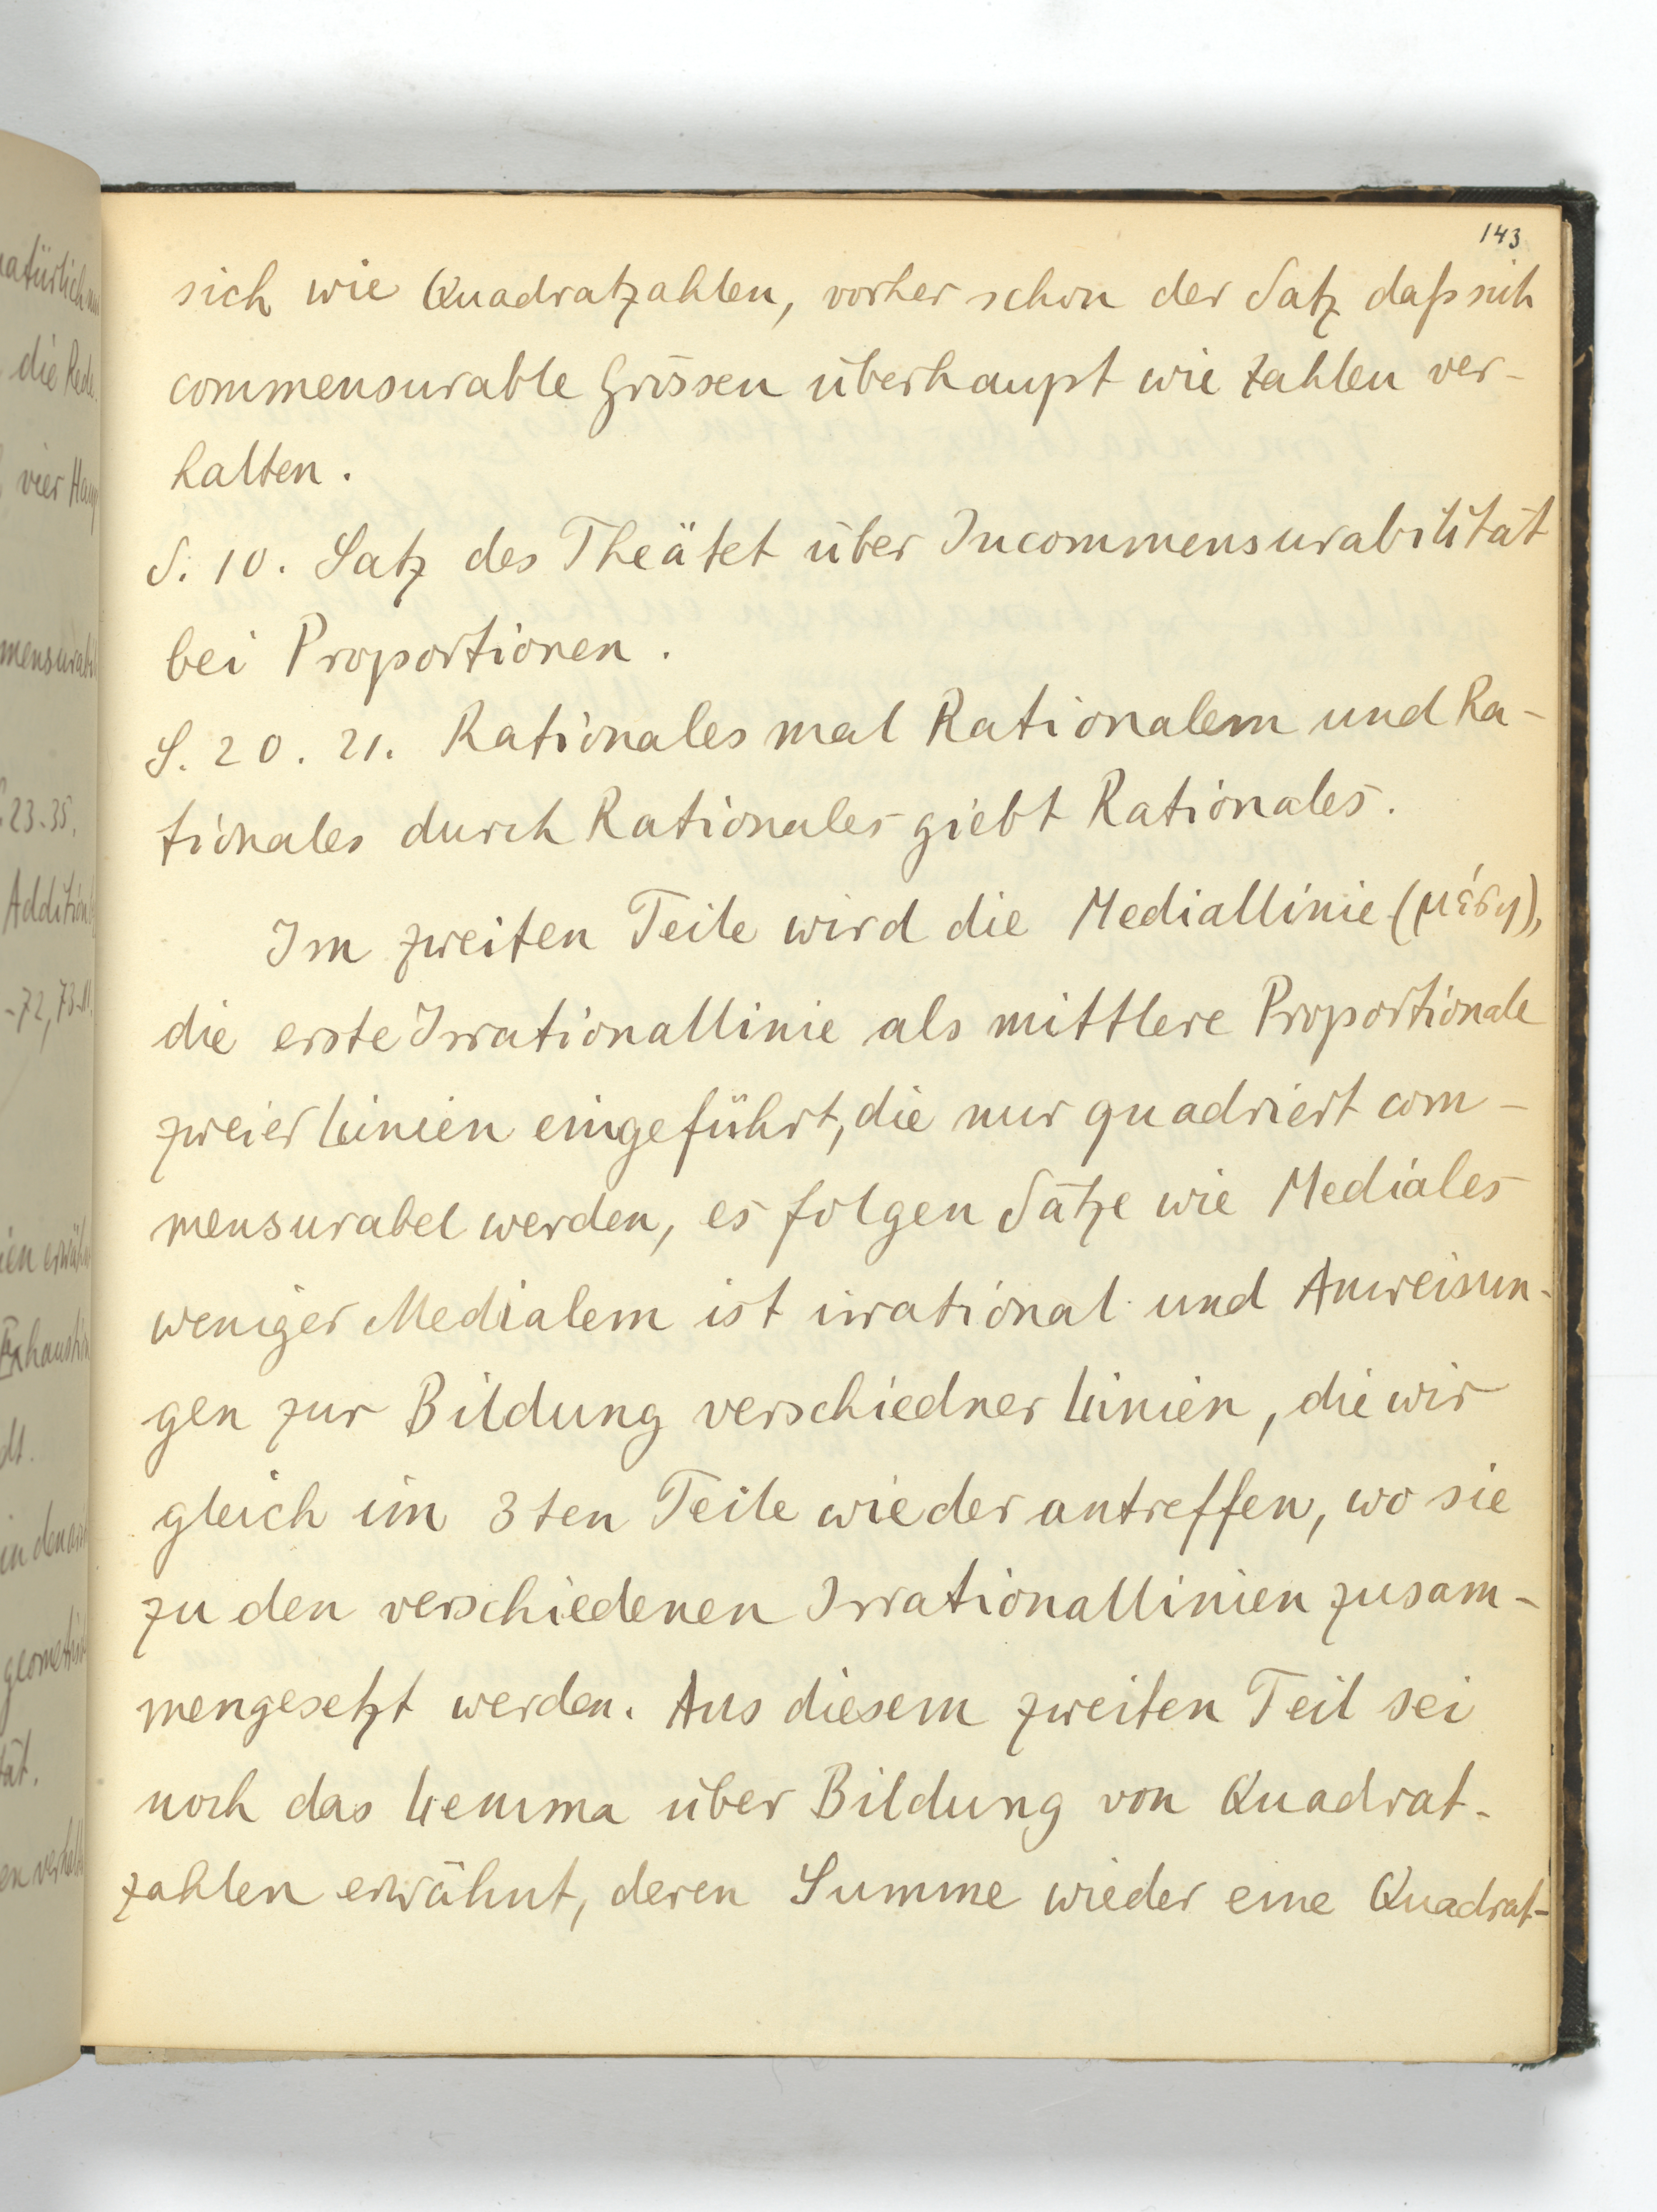 143
sich wie Quadratzahlen, vorher schon der Satz daß sich
commensurable Grössen überhaupt wie Zahlen ver-
halten.
S. 10. Satz des Theätet über Incommensurabilität
bei Proportionen.
S. 20. 21. Rationales mal Rationalem und Ra-
tionales durch Rationales giebt Rationales.
Im zweiten Teile wird die Mediallinie (μέση),
die erste Irrationallinie als mittlere Proportionale
zweier Linien eingeführt, die nur quadriert com-
mensurabel werden, es folgen Sätze wie Mediales
weniger Medialem ist irrational und Anweisun-
gen zur Bildung verschiedner Linien, die wir
gleich im 3ten Teile wieder antreffen, wo sie
zu den verschiedenen Irrationallinien zusam-
mengesetzt werden. Aus diesem zweiten Teil sei
noch das Lemma über Bildung von Quadrat-
zahlen erwähnt, deren Summe wieder eine Quadrat-